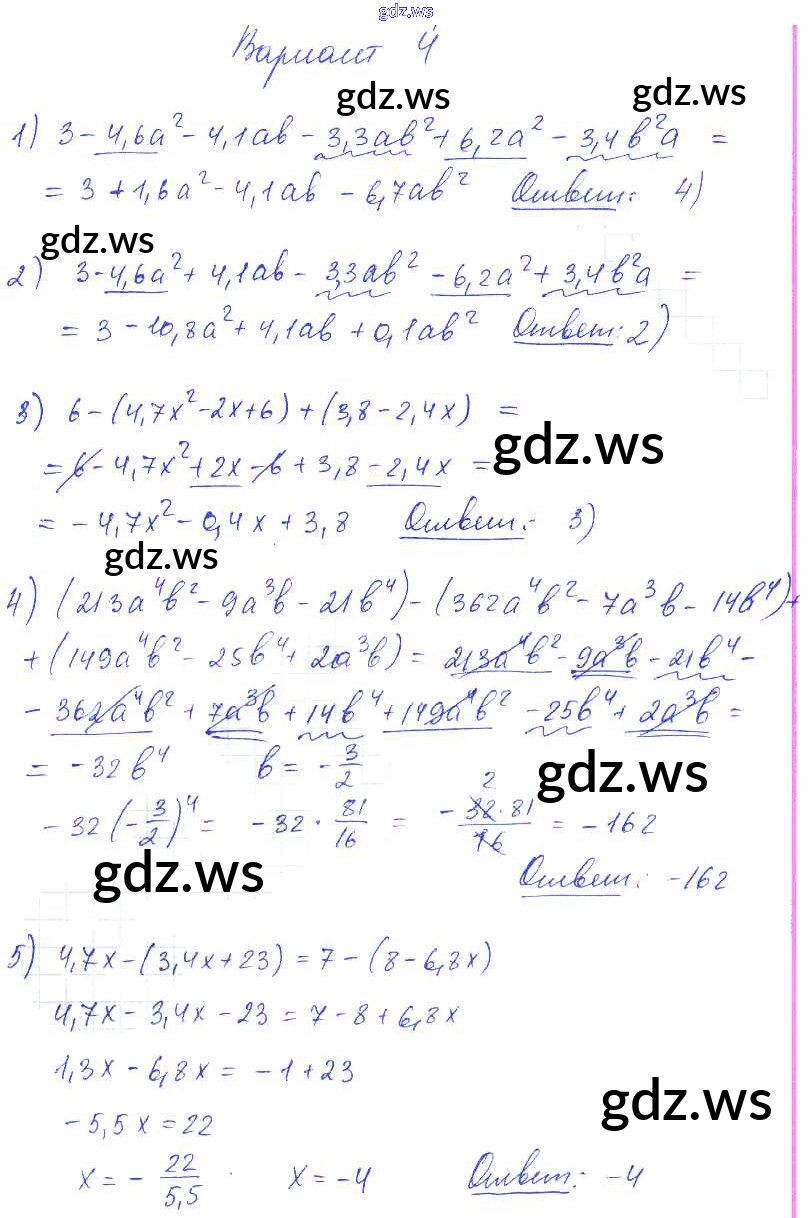 gdz.ws
Вариант 4
gdz.ws gdz.ws
1) 3 - 4,6a² - 4,1ab - 3,3ab² + 6,2a² - 3,4b²a =
= 3 + 1,6a² - 4,1ab - 6,7ab² Ответ: 4)
gdz.ws
2) 3 - 4,6a² + 4,1ab - 3,3ab² - 6,2a² + 3,4b²a =
= 3 - 10,8a² + 4,1ab + 0,1ab² Ответ: 2)
3) 6 - (4,7x² - 2x + 6) + (3,8 - 2,4x) =
gdz.ws
= 6 - 4,7x² + 2x - 6 + 3,8 - 2,4x =
= - 4,7x² - 0,4x + 3,8 Ответ: 3)
gdz.ws
4) (213a⁴b² - 9a³b - 21b⁴) - (362a⁴b² - 7a³b - 14b⁴) +
+ (149a⁴b² - 25b⁴ + 2a³b) = 213a⁴b² - 9a³b - 21b⁴ -
- 362a⁴b² + 7a³b + 14b⁴ + 149a⁴b² - 25b⁴ + 2a³b =
= - 32b⁴ b = - 3/2
gdz.ws
- 32 (- 3/2)⁴ = - 32 · 81/16 = - 32 · 81/16 = - 162
2
gdz.ws
Ответ: -162
5) 4,7x - (3,4x + 23) = 7 - (8 - 6,8x)
4,7x - 3,4x - 23 = 7 - 8 + 6,8x
1,3x - 6,8x = - 1 + 23
gdz.ws
- 5,5x = 22
x = - 22/5,5 x = - 4 Ответ: -4